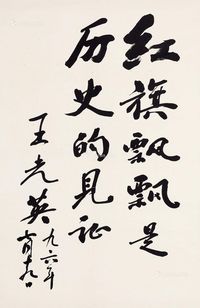 红旗飘飘是
历史的见证
王光英
九六年